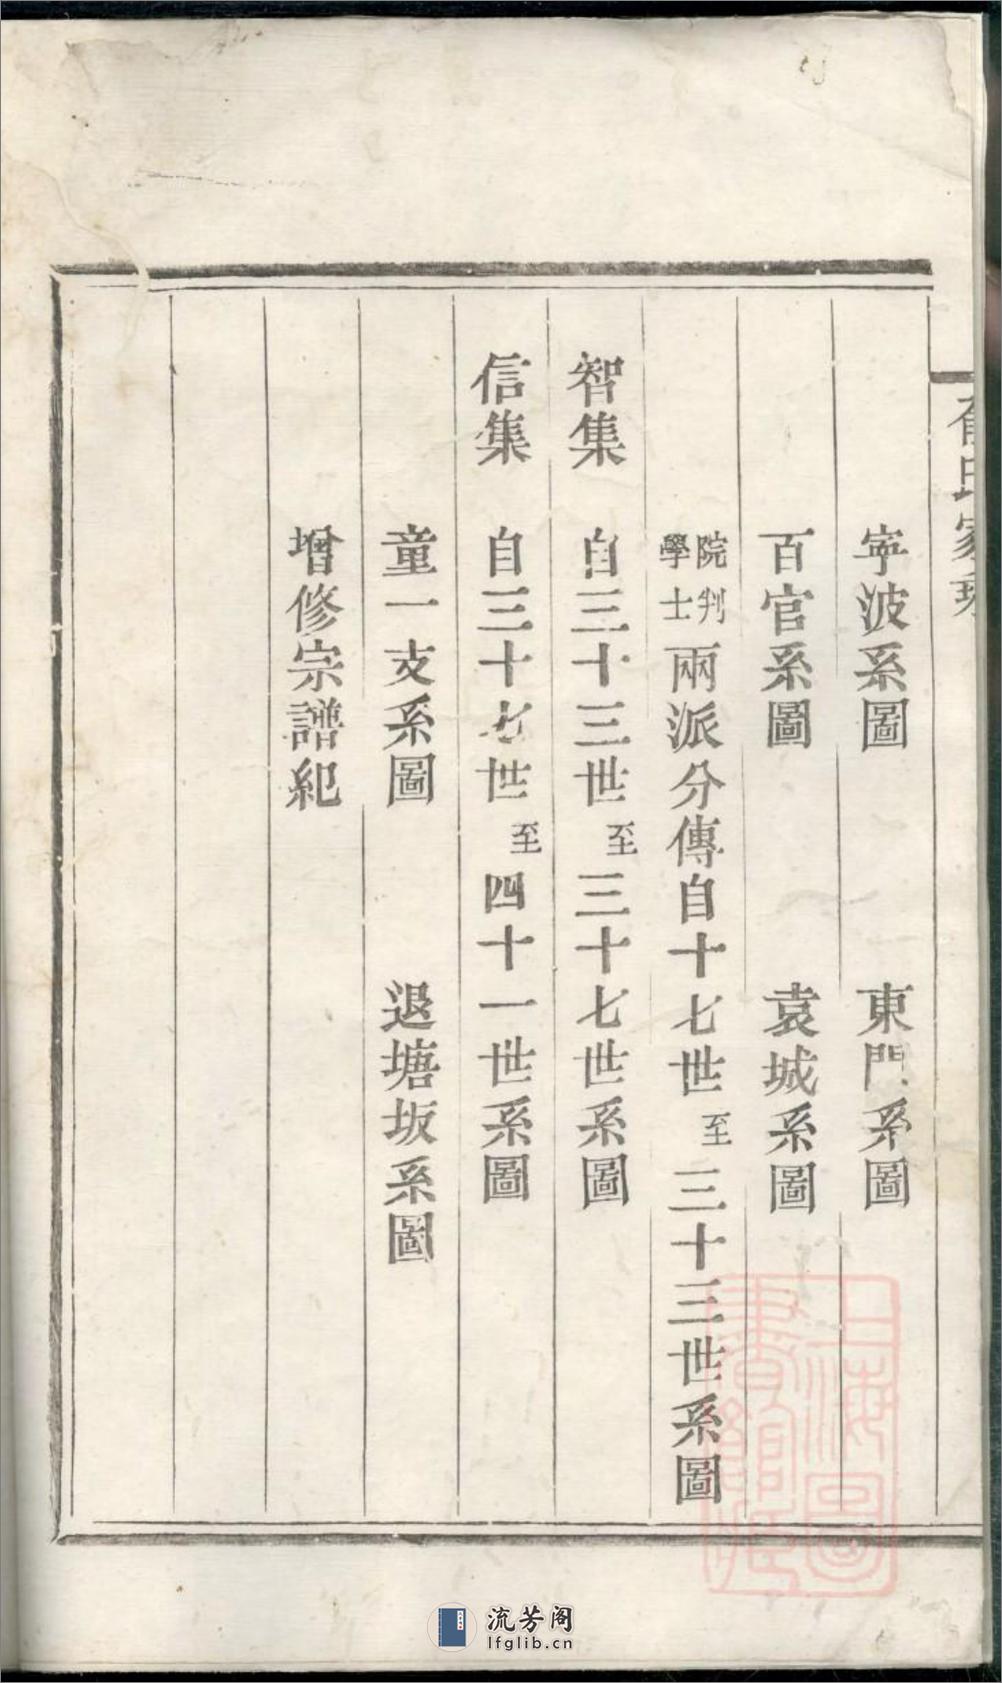 氏家乘
寕波系圖　東門系圖
百官系圖　袁城系圖
院判學士兩派分傳自十七世至三十三世系圖
智集　自三十三世至三十七世系圖
信集　自三十七世至四十一世系圖
童一支系圖　退塘坂系圖
增修宗譜紀
上海圖
書館藏
流芳阁
lfglib.cn